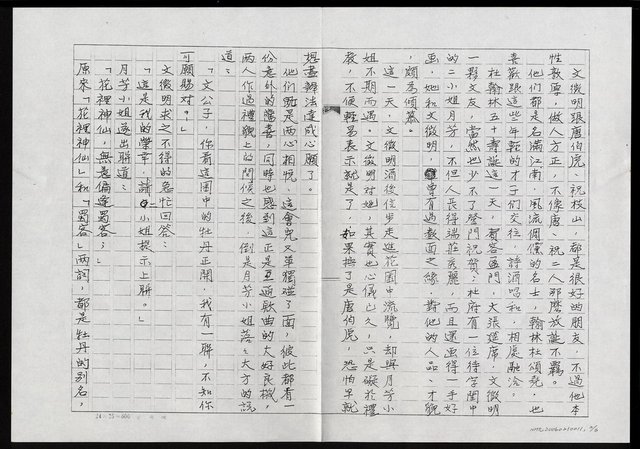 文徵明跟唐伯虎、祝枝山,都是很好的朋友,不過他本
性敦厚,做人方正,不像唐、祝二人那麼放誕不羈。
他們都是名滿江南,風流倜儻的名士,翰林杜頌堯,也
喜歡跟這些年輕的才子們交往,詩酒唱和,相處融洽。
杜翰林五十壽誕這一天,賀客盈門,大張筵席,文徵明
一夥文友,當然也少不了登門祝賀;杜府有一位待字閨中
的二小姐月芳,不但人長得端莊秀麗,而且還畫得一手好
畫,她和文徵明,曾有過數面之緣,對他的人品、才貌
,頗為傾慕。
這一天,文徵明酒後信步走進花園中流覽,却與月芳小
姐不期而遇。文徵明對她,其實也心儀已久,只是礙於禮
教,不便輕易表示就是了,如果換了是唐伯虎,恐怕早就
想盡辦法達成心願了。
他們既是兩心相悅,這會兒又單獨碰了面,彼此都有一
份意外的驚喜,同時也感到這正是互通款曲的大好良機,
兩人作過禮貌上的問候之後,倒是月芳小姐落落大方的說
道:
「文公子,你看這園中的牡丹正開,我有一聯,不知你
可願賜対。」
文徵明求之不得的急忙回答:
「這是我的榮幸,請小姐提示上聯。」
月芳小姐遂出聯道:
「花裡神仙,無意偏逢蜀客;」
原來「花裡神仙」和「蜀客」兩詞,都是牡丹的別名,
24×25=600